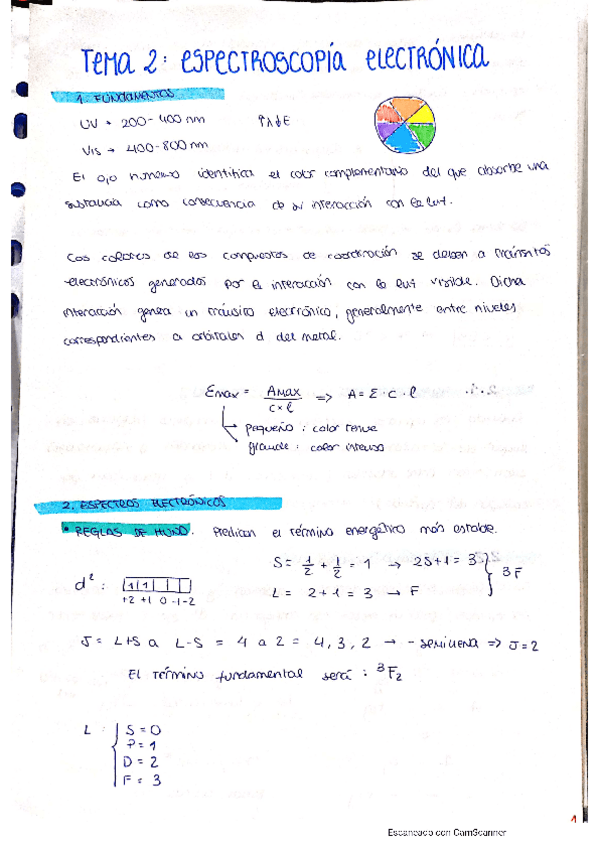 TEMA 2: ESPECTROSCOPÍA ELECTRÓNICA
1. FUNDAMENTOS
UV → 200-400 nm ↑λ↓E
Vis → 400-800 nm
El ojo humano identifica el color complementario del que absorbe una
sustancia como consecuencia de su interacción con la luz.
Los colores de los compuestos de coordinación se deben a tránsitos
electrónicos generados por la interacción con la luz visible. Dicha
interacción genera un tránsito electrónico, generalmente entre niveles
correspondientes a orbitales d del metal.
Emax = Amax / c×l => A = Ɛ · c · l
pequeño: color tenue
grande: color intenso
2. ESPECTROS ELECTRÓNICOS
* REGLAS DE HUND. Predicen el término energético más estable.
S = 1/2 + 1/2 = 1 → 2S+1 = 3
d²: +2 +1 0 -1 -2
L = 2+1 = 3 → F
³F
J = L+S a L-S = 4 a 2 = 4, 3, 2 → - semillena => J=2
El término fundamental será: ³F₂
L: S = 0
P = 1
D = 2
F = 3
1
Escaneado con CamScanner